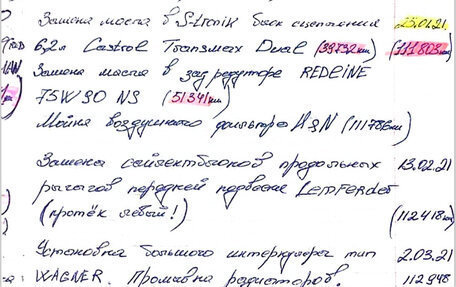 Замена масла в S-tronic блок сцепления 25.01.21.
6,2л Castrol Transmax Dual (39732км) (111803км)
Замена масла в зад редукторе REDLINE
75W90 NS (51341км)
Мойка воздушного фильтра K&N (111786км)
Замена сайлентблоков продольных 13.02.21
рычагов передней подвески Lemferder
(протёк левый!) (112418км)
Установка большого интеркулера тип 2.03.21
WAGNER. Промывка радиаторов. 112948